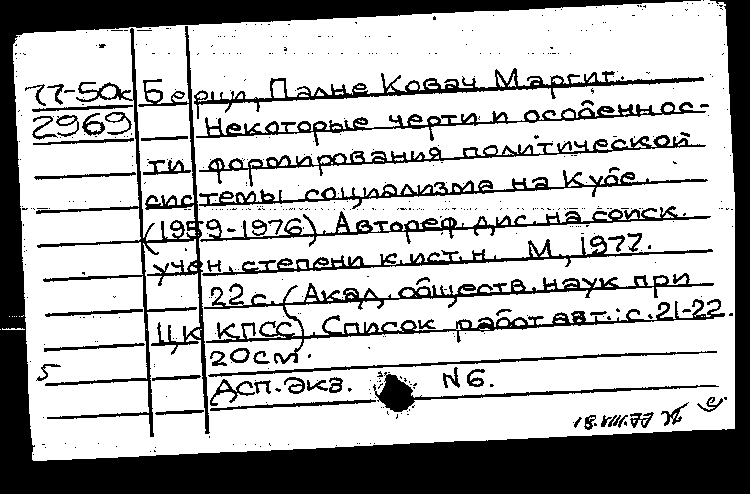 77-50к Берци, Палне Ковач Маргит.
2969 Некоторые черти и особеннос-
ти формирования политической
системы социализма на Кубе.
(1959-1976). Автореф. дис. на соиск.
учен. степени к.ист.н. М., 1977.
22 с. (Акад. обществ. наук при
ЦК КПСС). Список работ авт.: с. 21-22.
20 см.
5
Дсп. Экз. N 6.
18.VIII.77